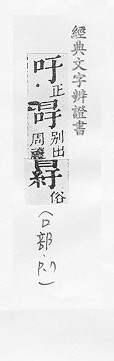 經典文字辨證書
吁正
别出周禮
俗
(口部.P.7)